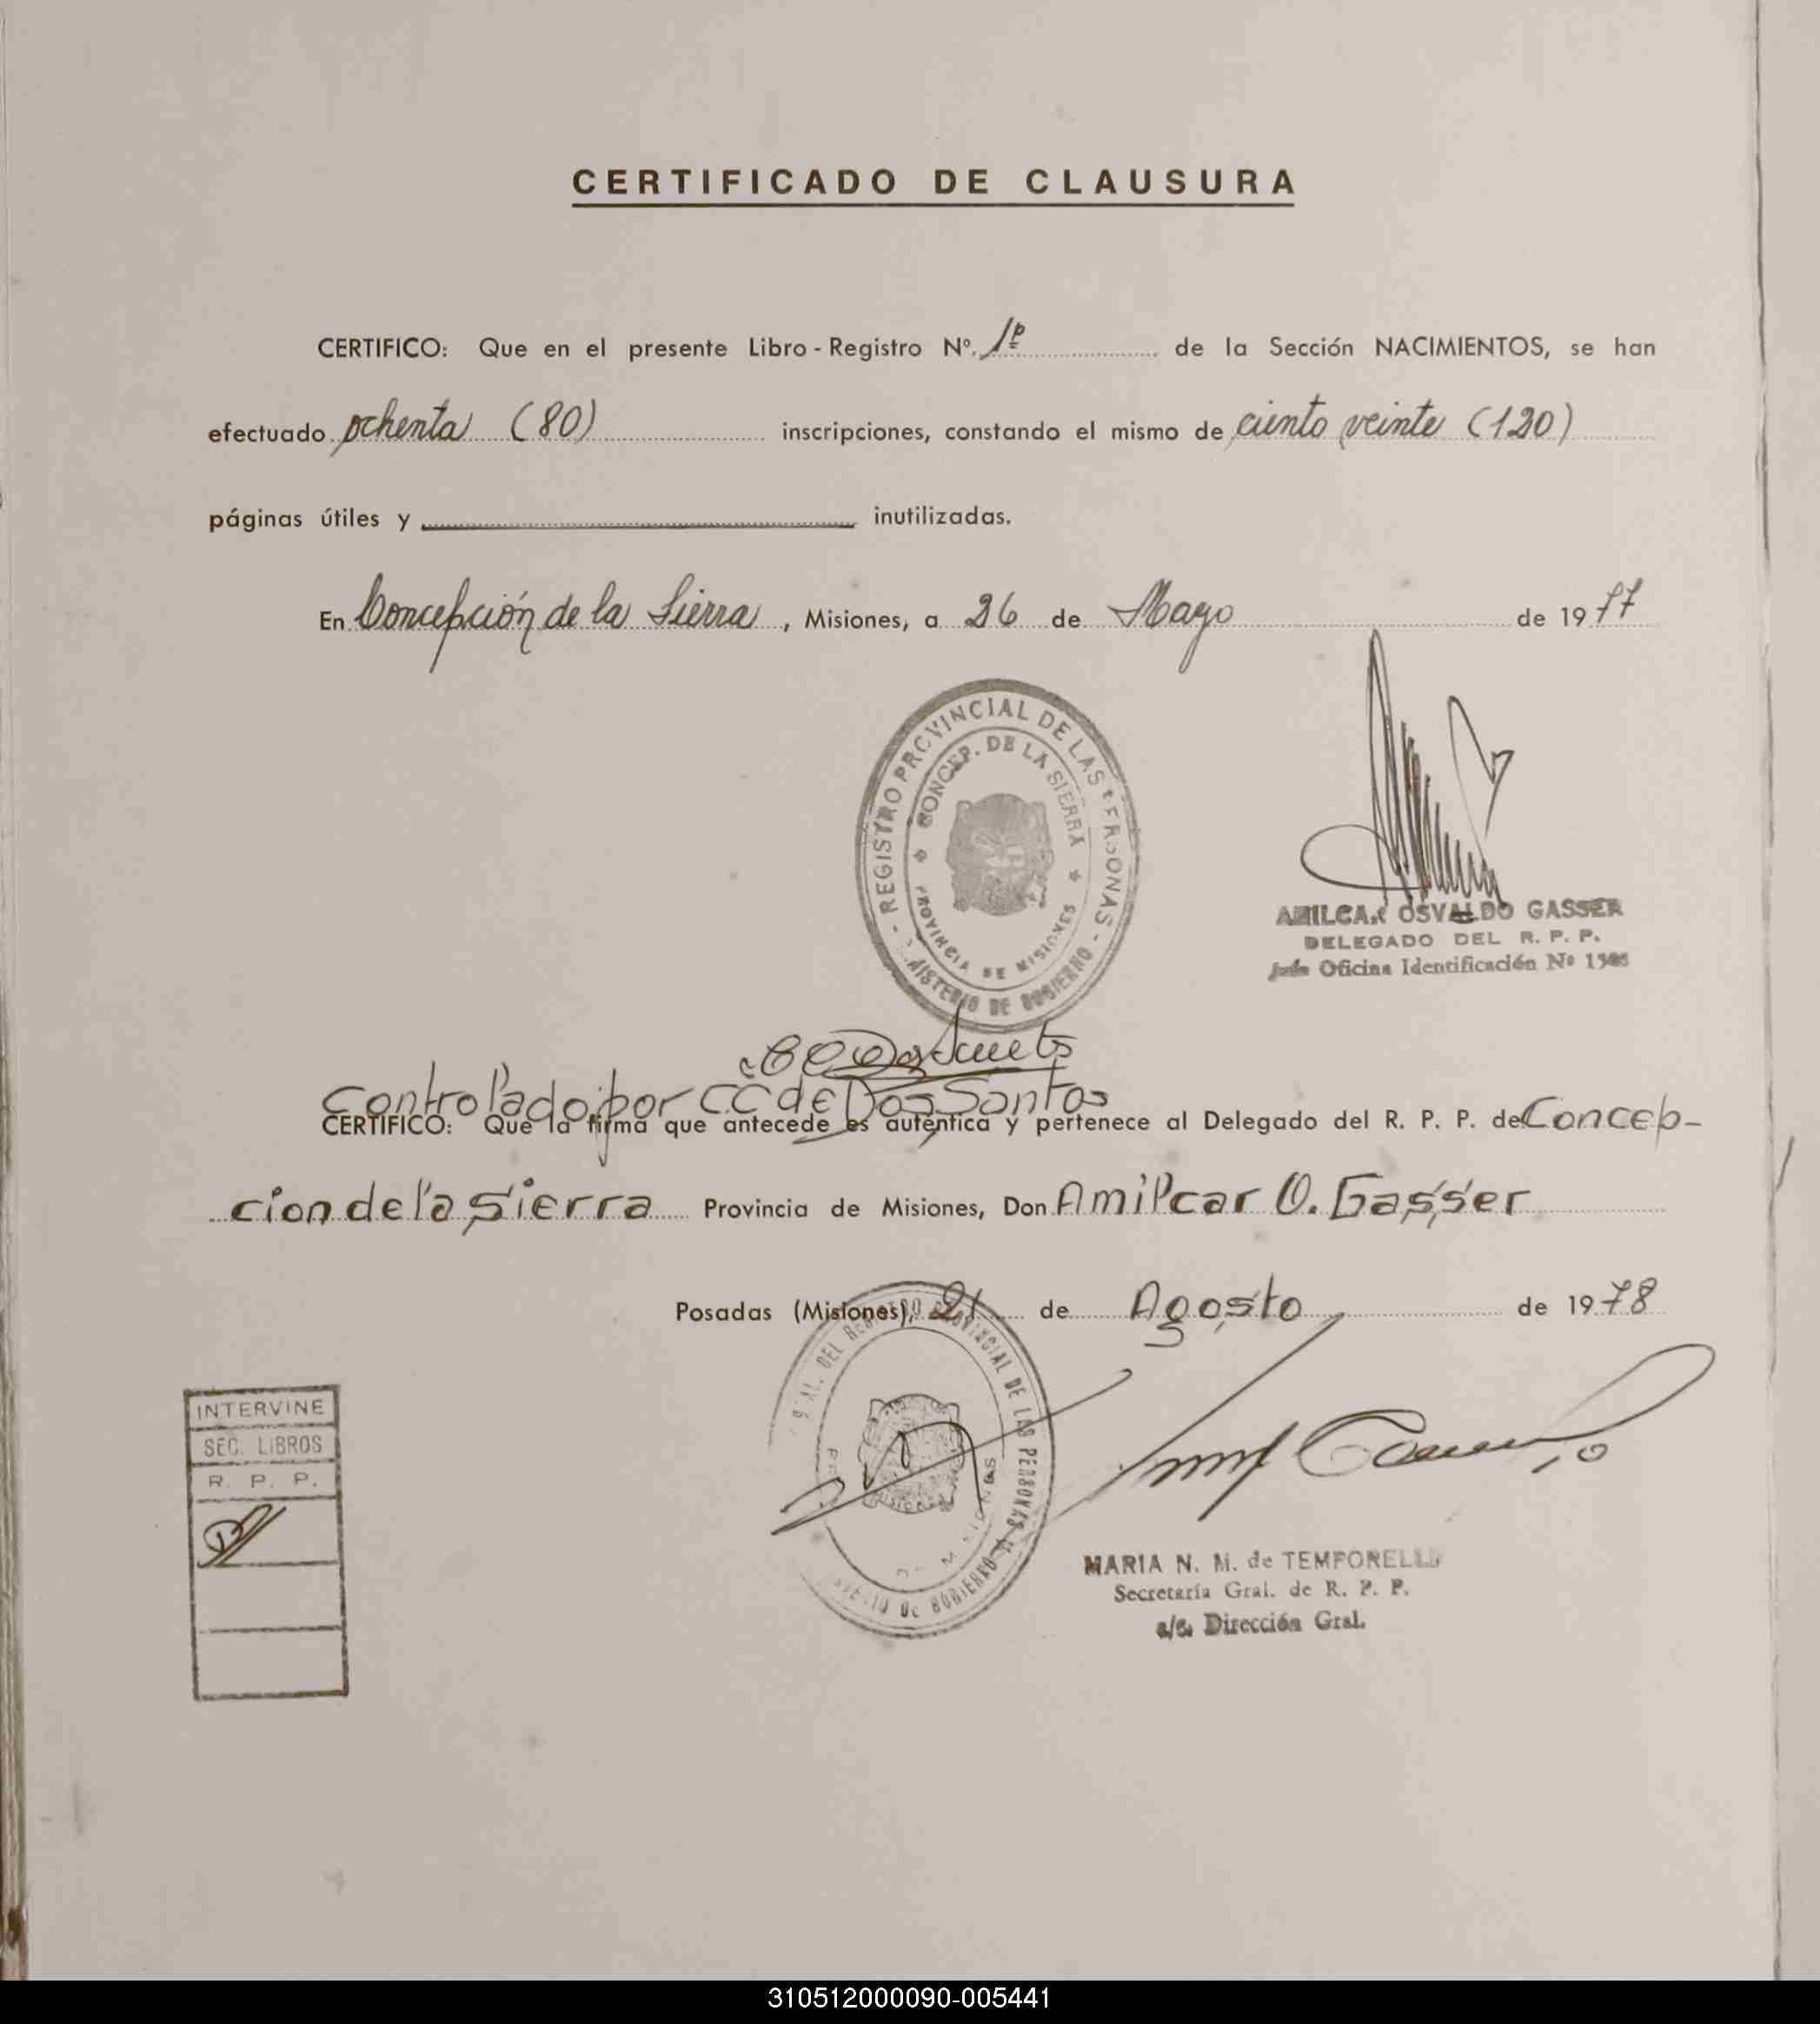 CERTIFICADO DE CLAUSURA
CERTIFICO: Que en el presente Libro - Registro Nº. 1º de la Sección NACIMIENTOS, se han
efectuado ochenta (80) inscripciones, constando el mismo de ciento veinte (120)
páginas útiles y inutilizadas.
En Concepción de la Sierra, Misiones, a 26 de Mayo de 1977
- REGISTRO PROVINCIAL DE LAS PERSONAS -
CONCEP. DE LA SIERRA
PROVINCIA DE MISIONES
MINISTERIO DE GOBIERNO
AMILCAR OSVALDO GASSER
DELEGADO DEL R. P. P.
Jefe Oficina Identificación Nº
Controlado por C.C de Dos Santos
CERTIFICO: Que la firma que antecede es auténtica y pertenece al Delegado del R. P. P. de Concep-
cion de la Sierra Provincia de Misiones, Don Amilcar O. Gasser
Posadas (Misiones), 21 de Agosto de 1978
GRAL. DEL REGISTRO PROVINCIAL DE LAS PERSONAS
DE GOBIERNO
INTERVINE
SEC. LIBROS
R. P. P.
MARIA N. M. de TEMPORELLI
Secretaría Gral. de R. P. P.
a/c. Dirección Gral.
310512000090-005441